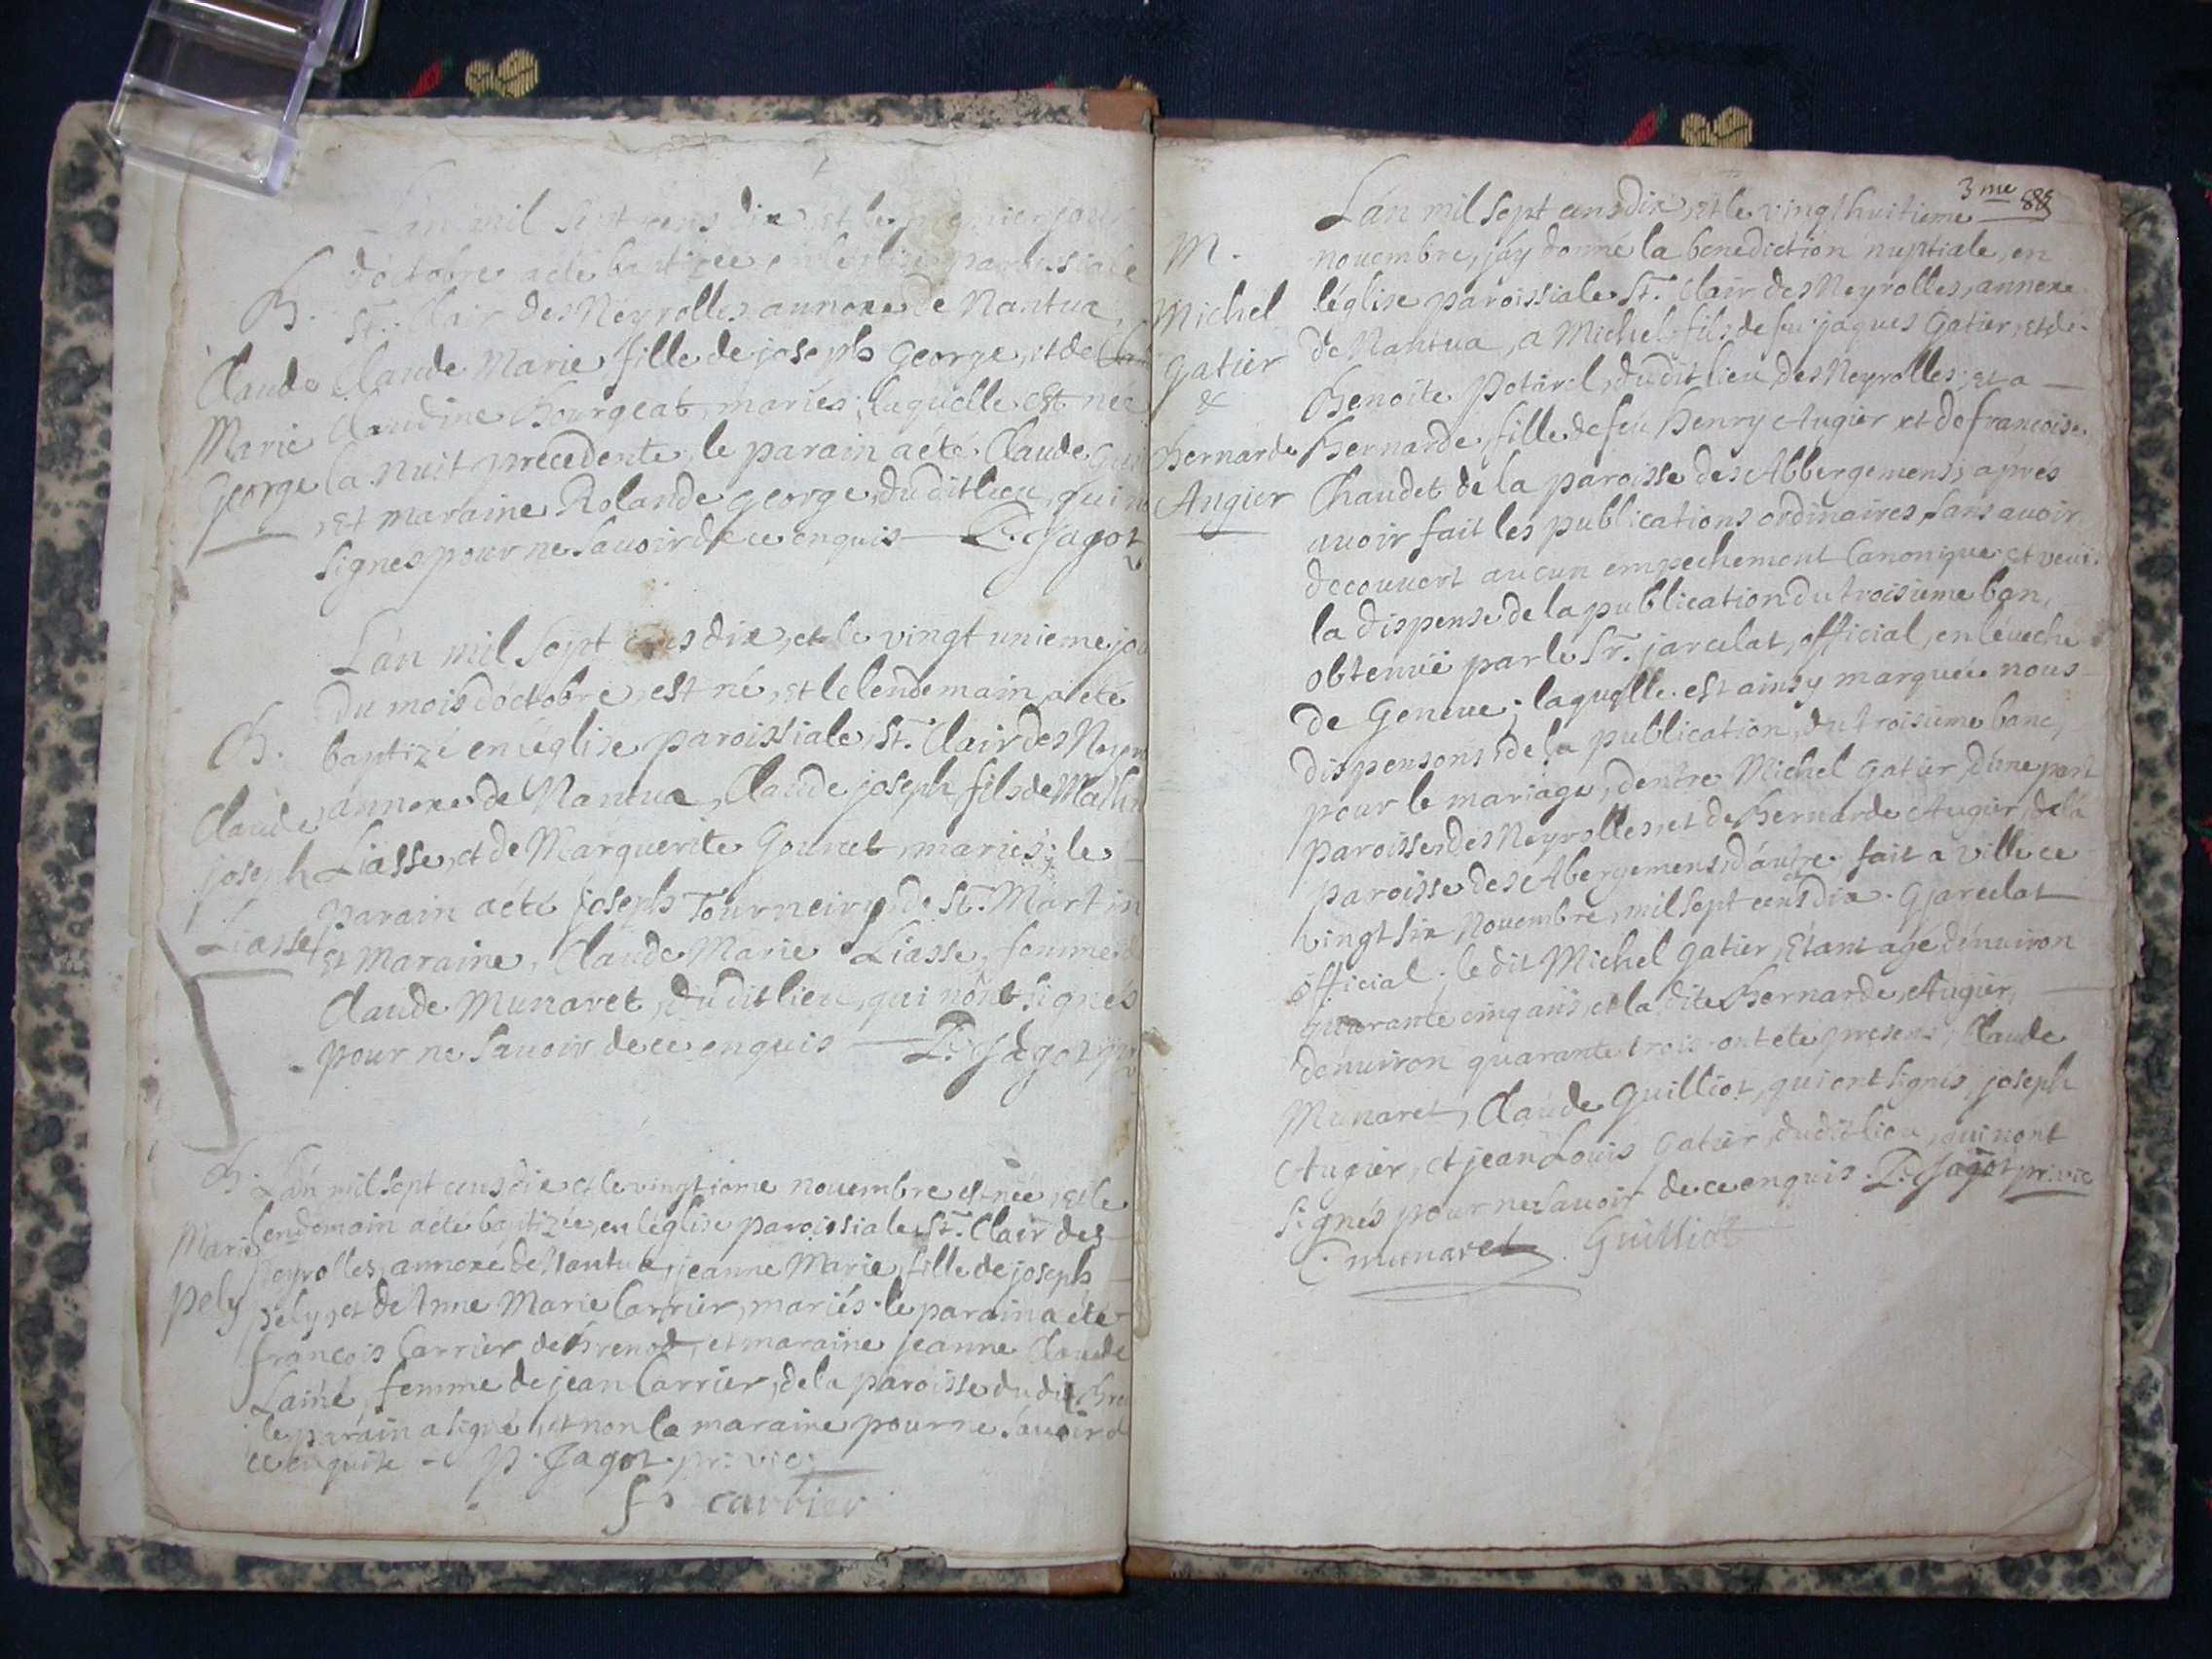 L'an mil sept cens dix, et le premier jour
d'octobre a été baptizée en l'eglise paroissiale
B.
St. Clair des Neyrolles annexe de Nantua,
Claude
Claude Marie fille de joseph George, et de
Marie
Claudine Bourgeat, mariés; laquelle est née
George
la nuit precedente, le parain a été Claude
et maraine Rolande george, du dit lieu, qui
signes pour ne savoir de ce enquis — P. Jagot
L'an mil sept cens dix, et le vingt unieme jou
du mois d'octobre, est né, et le lendemain a été
B.
baptizé en l'église paroissiale, St. Clair des Neyr
Claude
annexe de Nantua, Claude joseph fils de
joseph
Liasse, et de Marguerite Gounet, mariés; le —
Liasse
parain a été joseph Tourneiry de St. Martin
et maraine, Claude Marie Liasse, femme
Claude Munaret, du dit lieu, qui n'ont signés
pour ne savoir de ce enquis — P. Jagot
B.
L'an mil sept cens dix et le vingtieme novembre est née, et le
Marie
lendemain a été baptizée, en l'église paroissiale St. Clair des
Neyrolles, annexe de Nantua, jeanne Marie, fille de joseph —
pely
pely, et de Anne Marie Carrier, mariés. le parain a été
françois Carrier de Brenod, et maraine jeanne Claude
Lainé, femme de jean Carrier, de la paroisse du dit Bre
le parain a signé, et non la maraine pour ne savoir d
ce enquise — P. Jagot pr. vic.
fs carrier
3me 88
L'an mil sept cens dix, et le vingt huitieme
M.
novembre, j'ay donné la benediction nuptiale, en
Michel
l'église paroissiale St. Clair des Neyrolles, annexe
Gatier
de Nantua, a Michel fils de feu jaques Gatier, et de
&
Benoite Potard, du dit lieu des Neyrolles; et a —
Bernarde
Bernarde, fille de feu henry Augier et de francoise
Augier
Chaudet de la paroisse des Abbergemens; apres
avoir fait les publications ordinaires sans avoir
decouvert aucun empechement Canonique et veüe
la dispense de la publication du troisieme ban,
obtenuë par le Sr. jarcelat, official, en l'éveché
de Geneve; laquelle est ainsy marquée nous
dispensons de la publication, du troisieme banc,
pour le mariage, d'entre Michel Gatier d'une part
paroisse des Neyrolles, et de Bernarde Augier, de la
paroisse des Abergemens d'autre. fait a ville ce
vingt six Novembre, mil sept cens dix. G jarcelat
official; le dit Michel Gatier, étant agé d'environ
quarante cinq ans, et la dite Bernarde Augier, —
d'environ quarante trois. ont été presens, Claude
Munaret, Claude Guilliot, qui ont signés, joseph
Augier, et jean Louis Gatier du dit lieu, qui n'ont
signés pour ne savoir de ce enquis. P. Jagot pr. vic
C. munaret Guilliot